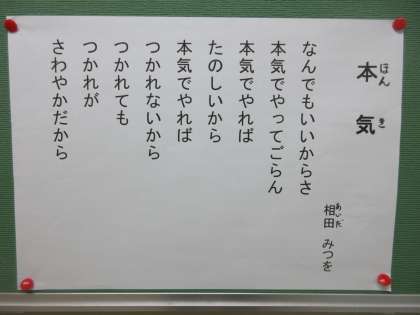 本気
ほんき
相田 みつを
あいだ
なんでもいいからさ
本気でやってごらん
本気でやれば
たのしいから
本気でやれば
つかれないから
つかれても
つかれが
さわやかだから